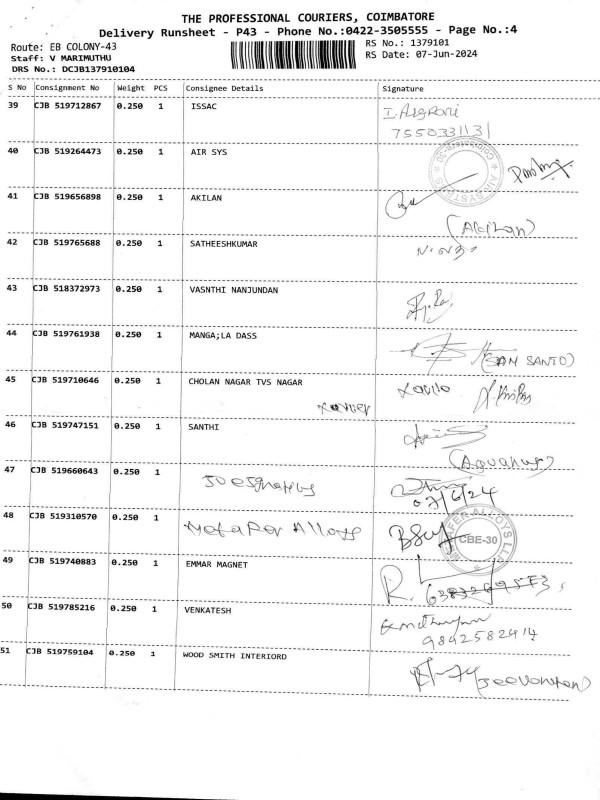 THE PROFESSIONAL COURIERS, COIMBATORE
Delivery Runsheet - P43 - Phone No.:0422-3505555 - Page No.:4
Route: EB COLONY-43
Staff: V MARIMUTHU
DRS No.: DCJB137910104
RS No.: 1379101
RS Date: 07-Jun-2024
S No Consignment No Weight PCS Consignee Details Signature
39 CJB 519712867 0.250 1 ISSAC
7550331131
40 CJB 519264473 0.250 1 AIR SYS
41 CJB 519656898 0.250 1 AKILAN
(Akilan)
42 CJB 519765688 0.250 1 SATHEESHKUMAR
43 CJB 518372973 0.250 1 VASNTHI NANJUNDAN
44 CJB 519761938 0.250 1 MANGA;LA DASS
(SAM SANTO)
45 CJB 519710646 0.250 1 CHOLAN NAGAR TVS NAGAR
xavier
46 CJB 519747151 0.250 1 SANTHI
47 CJB 519660643 0.250 1
07/6/24
48 CJB 519310570 0.250 1 Alloys
CBE-30
49 CJB 519740883 0.250 1 EMMAR MAGNET
R.
50 CJB 519785216 0.250 1 VENKATESH
9842582414
51 CJB 519759104 0.250 1 WOOD SMITH INTERIORD